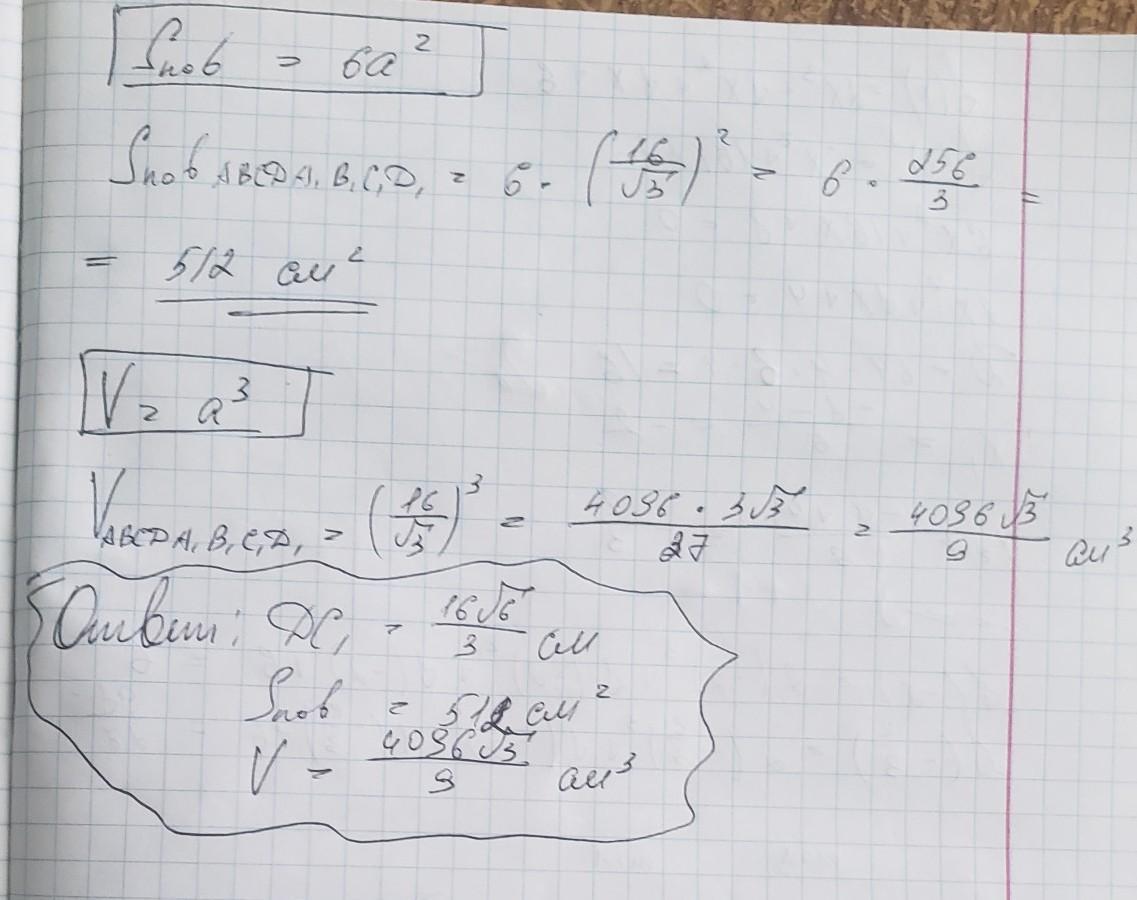 Sпов = 6a²
Sпов ABCDA₁B₁C₁D₁ = 6 · (16/√3)² = 6 · 256/3 =
= 512 см²
V = a³
V ABCDA₁B₁C₁D₁ = (16/√3)³ = 4096 · 3√3/27 = 4096√3/9 см³
Ответ: DC₁ = 16√6/3 см
Sпов = 512 см²
V = 4096√3/9 см³